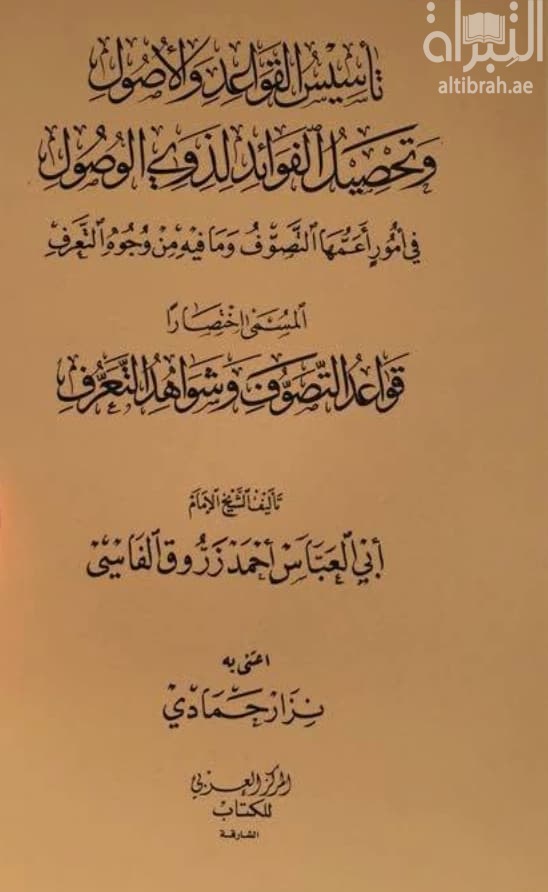 التبراة
altibrah.ae
تأسيس القواعد والأصول
وتحصيل الفوائد لذوي الوصول
في أمور أعمها التصوف وما فيه من وجوه التعرف
المسمى اختصارا
قواعد التصوف وشواهد التعرف
تأليف الشيخ الإمام
أبي العباس أحمد زروق الفاسي
اعتنى به
نزار حمادي
المركز العربي
للكتاب
الشارقة